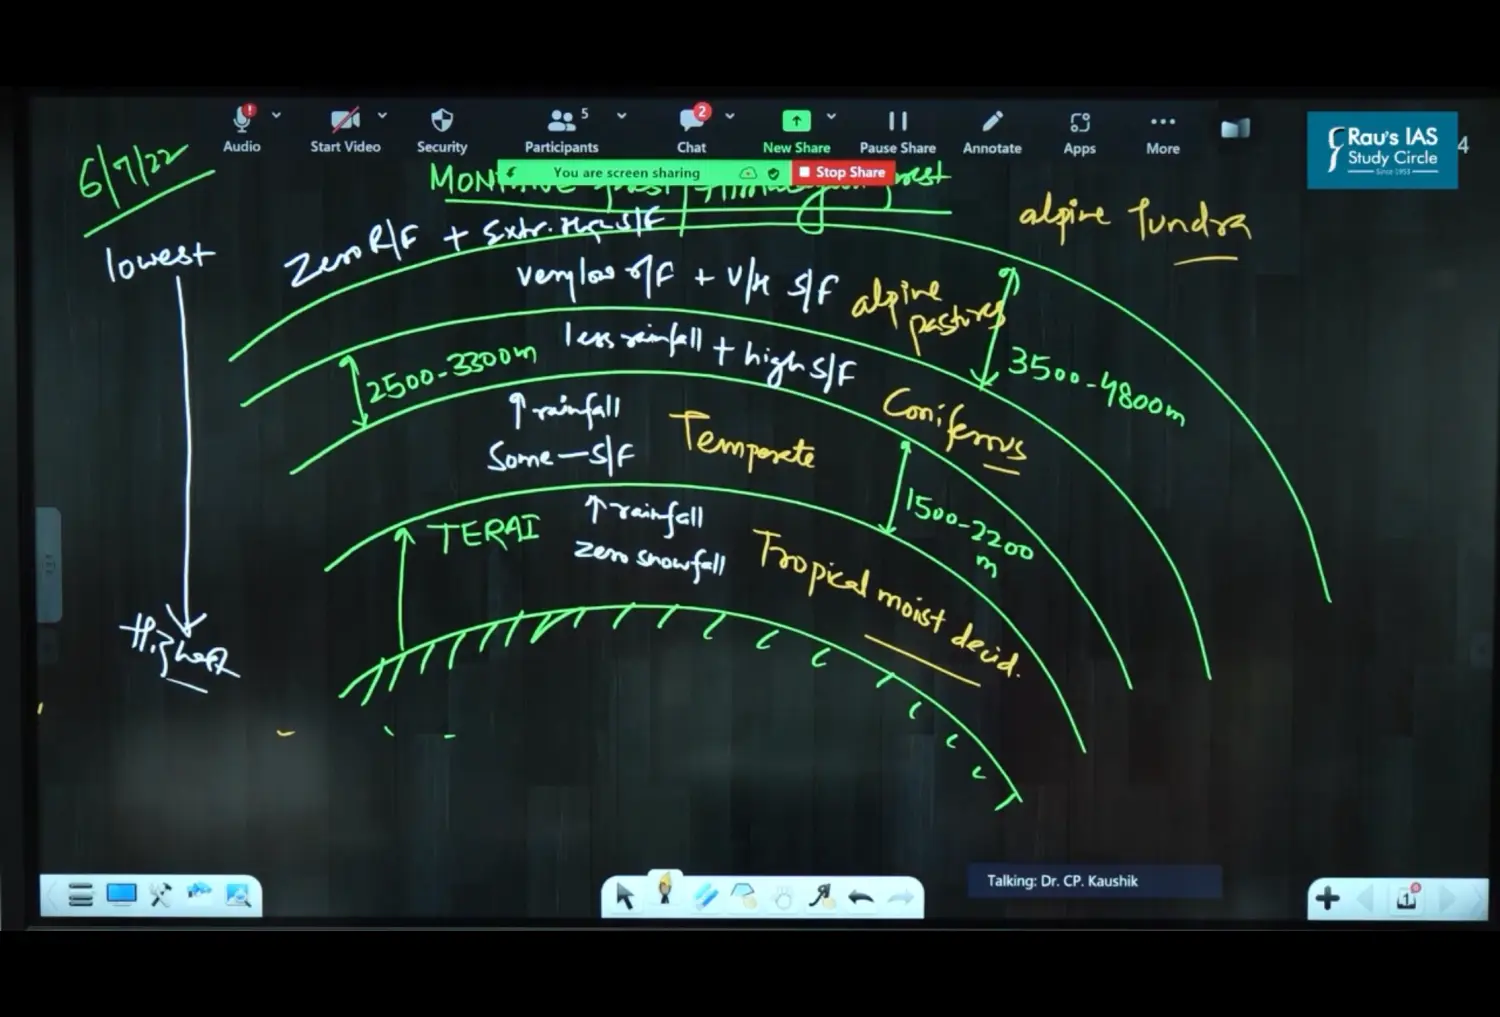 Audio
Start Video
Security
Participants
5
Chat
2
New Share
Pause Share
Annotate
Apps
More
Rau's IAS
Study Circle
Since 1953
4
You are screen sharing
Stop Share
6/7/22
alpine Tundra
lowest
Zero R/F + Extr. High S/F
very low r/F + V/H S/F
alpine
pastures
less rainfall + high S/F
2500-3300m
3500-4800m
↑ rainfall
Some - S/F
Temperate
Coniferous
1500-2200
m
TERAI
↑ rainfall
zero snowfall
Tropical moist decid.
Highest
Talking: Dr. CP. Kaushik
1